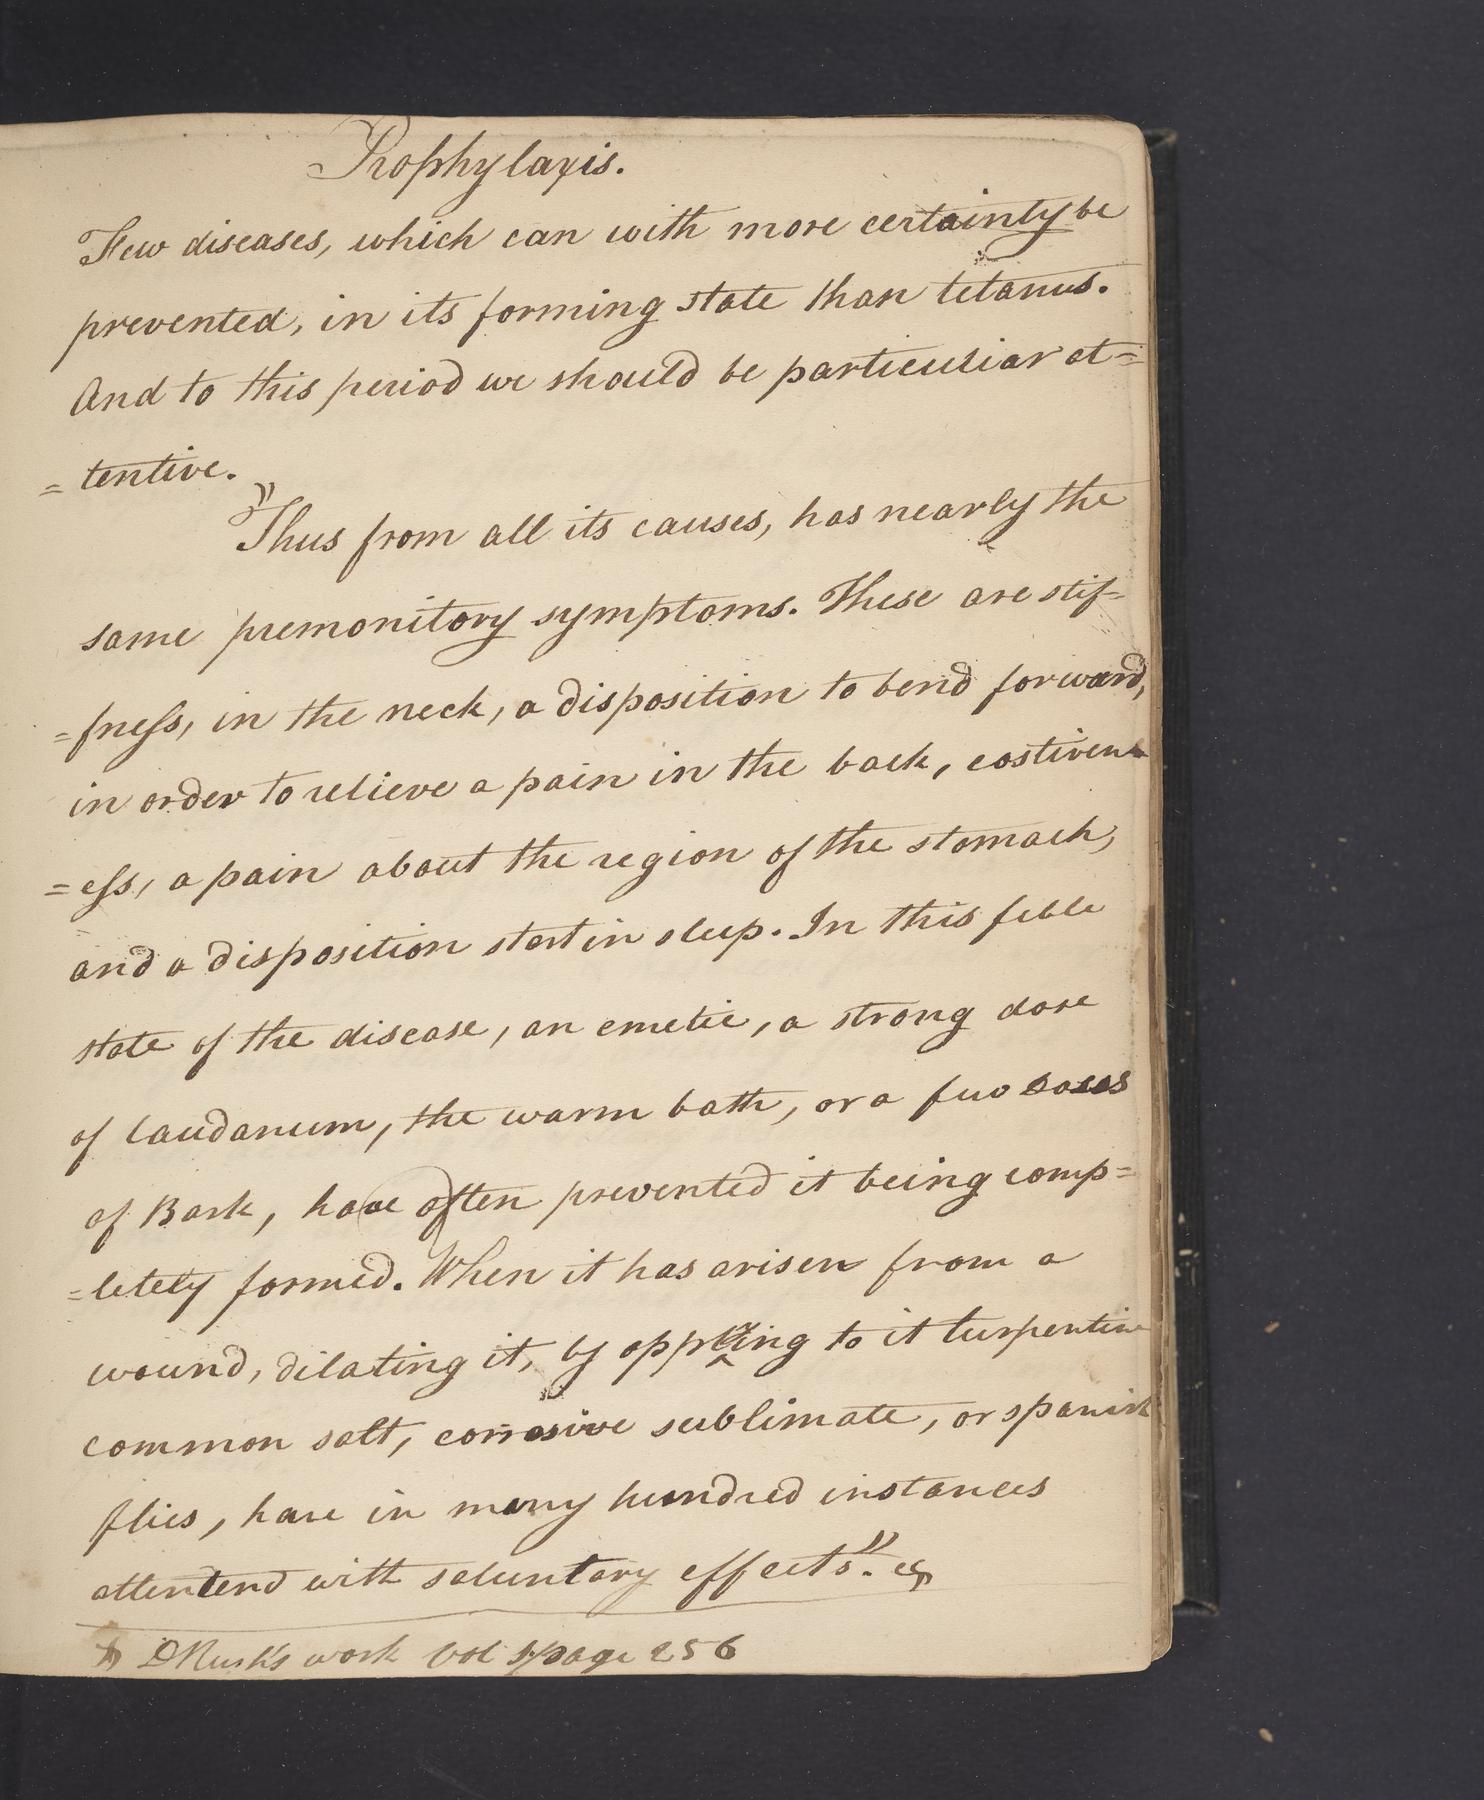 Prophylaxis.
Few diseases, which can with more certainty be
prevented, in its forming state than tetanus.
And to this period we should be particuliar at=
=tentive.
"Thus from all its causes, has nearly the
same premonitory symptoms. These are stif-
=fness, in the neck, a disposition to bend forward,
in order to relieve a pain in the back, costiven
=ess, a pain about the region of the stomach,
and a disposition start in sleep. In this feble
state of the disease, an emetic, a strong dose
of laudanum, the warm bath, or a few doses
of Bark, have often prevented it being comp=
=letely formed. When it has arisen from a
wound, dilating it, by appling to it turpentine
common salt, corrosive sublimate, or spanish
flies, have in many hundred instances
attentend with saluntary effects."
DRush's work vol 1 page 256